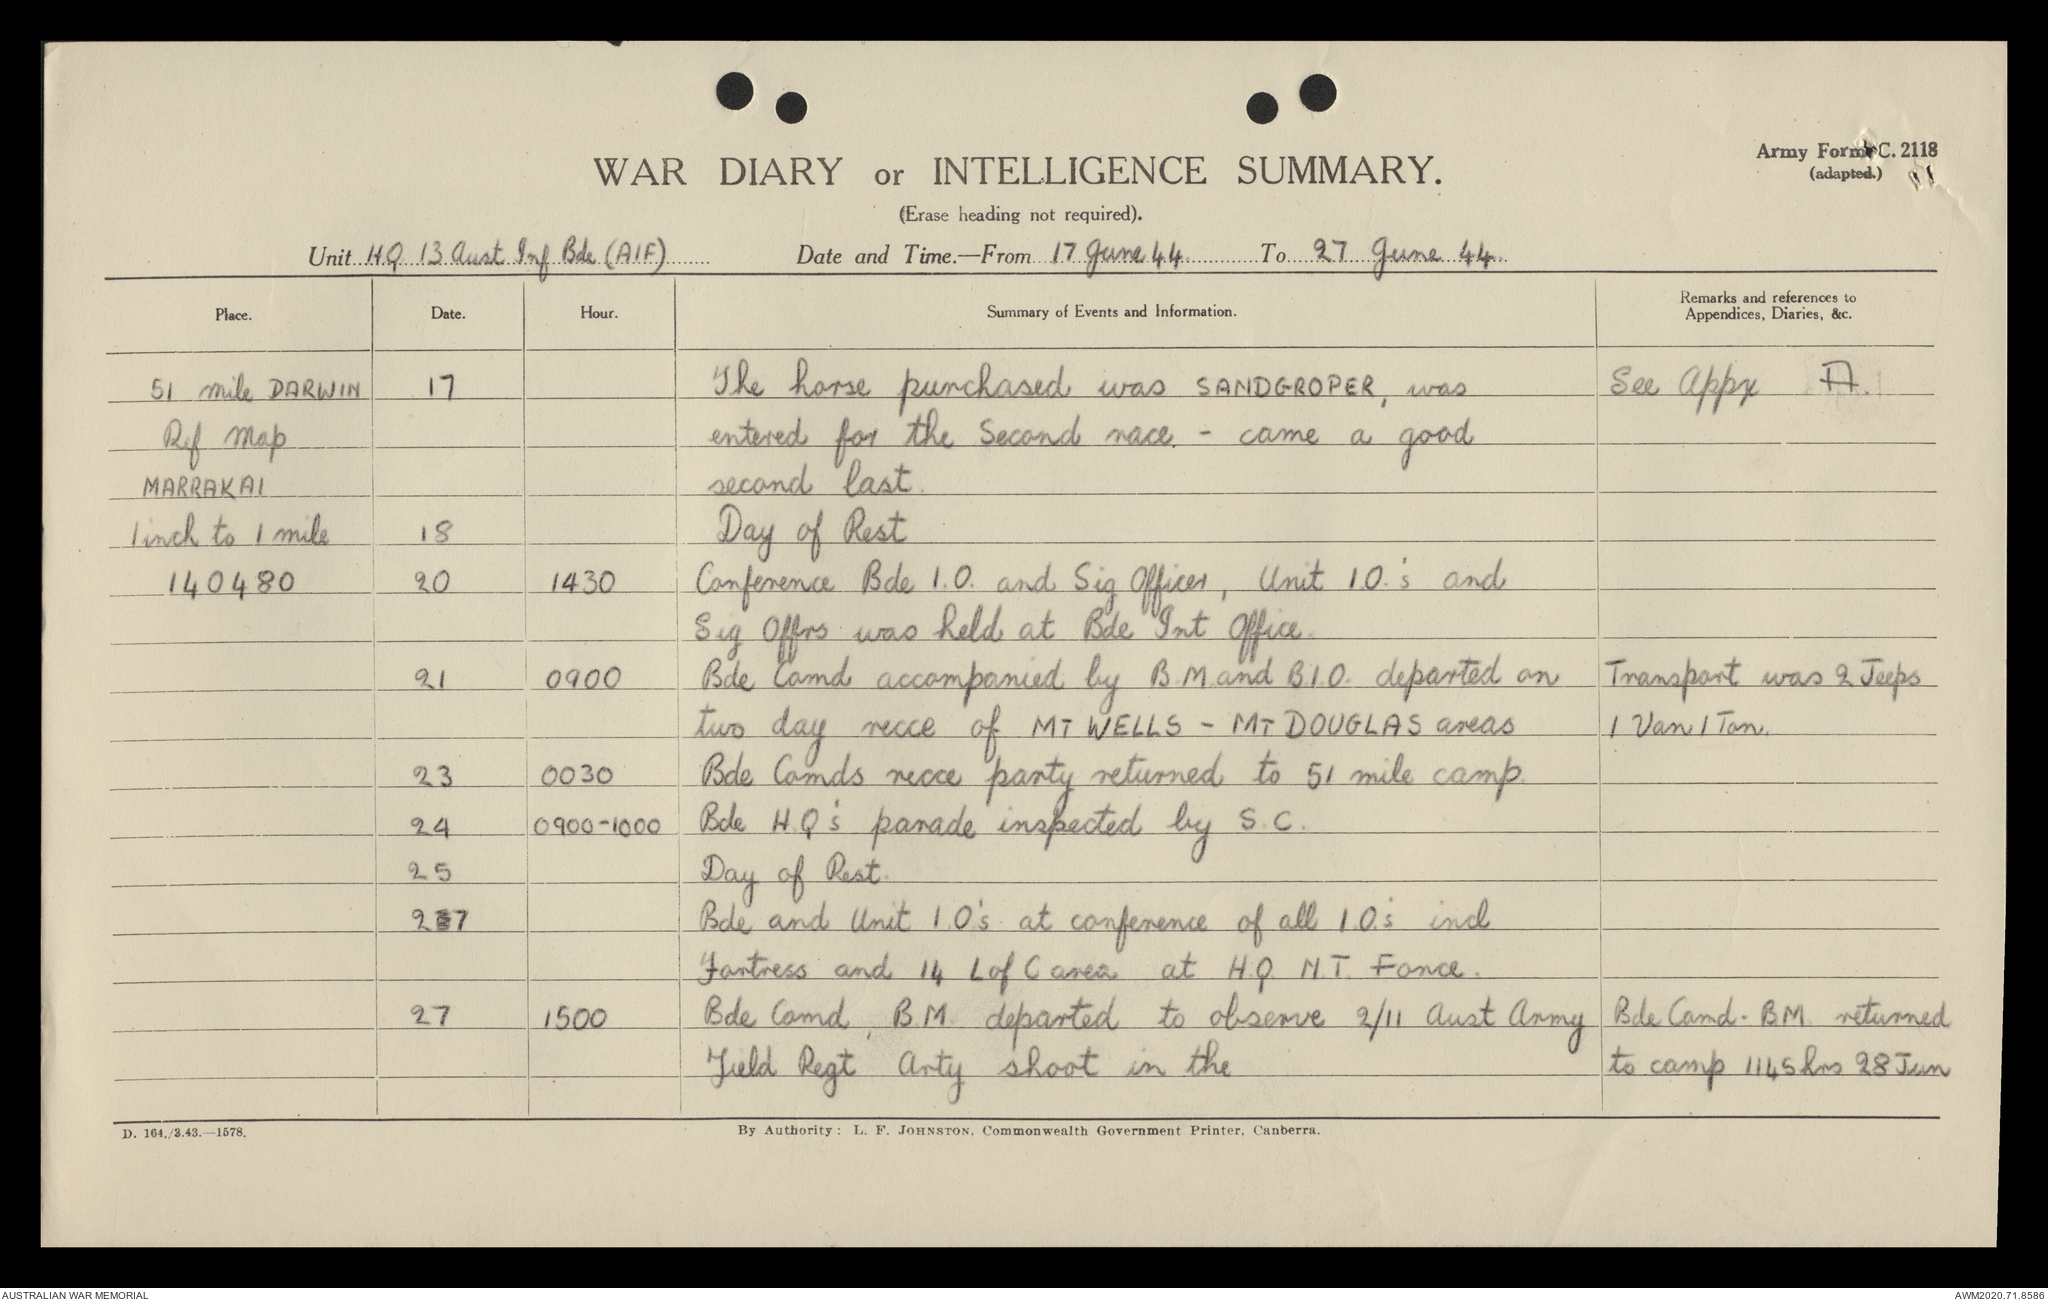 WAR DIARY or INTELLIGENCE SUMMARY.
Army Form C. 2118
(adapted.)
11
(Erase heading not required).
Unit HQ 13 Aust Inf Bde (AIF) Date and Time.—From 17 June 44 To 27 June 44
Place. Date. Hour. Summary of Events and Information. Remarks and references to Appendices, Diaries, &c.
51 mile DARWIN 17 The horse purchased was SANDGROPER, was See Appx A.
Ref Map entered for the Second race. - came a good
MARRAKAI second last.
1 inch to 1 mile 18 Day of Rest
140480 20 1430 Conference Bde I.O. and Sig Officer, Unit I.O.'s and
Sig Offrs was held at Bde Int Office.
21 0900 Bde Comd accompanied by B.M. and B.I.O. departed on Transport was 2 Jeeps
two day recce of MT WELLS - MT DOUGLAS areas 1 Van 1 Ton.
23 0030 Bde Comds recce party returned to 51 mile camp.
24 0900-1000 Bde H.Q's parade inspected by S.C.
25 Day of Rest.
27 Bde and Unit I.O's at conference of all I.O.'s incl
Fortress and 14 L of C area at H.Q. N.T. Force.
27 1500 Bde Comd, B.M. departed to observe 2/11 Aust Army Bde Comd - B.M. returned
Field Regt Arty shoot in the to camp 1145 hrs 28 Jun
D. 164./3.43.—1578.
By Authority: L. F. JOHNSTON, Commonwealth Government Printer, Canberra.
AUSTRALIAN WAR MEMORIAL
AWM2020.71.8586